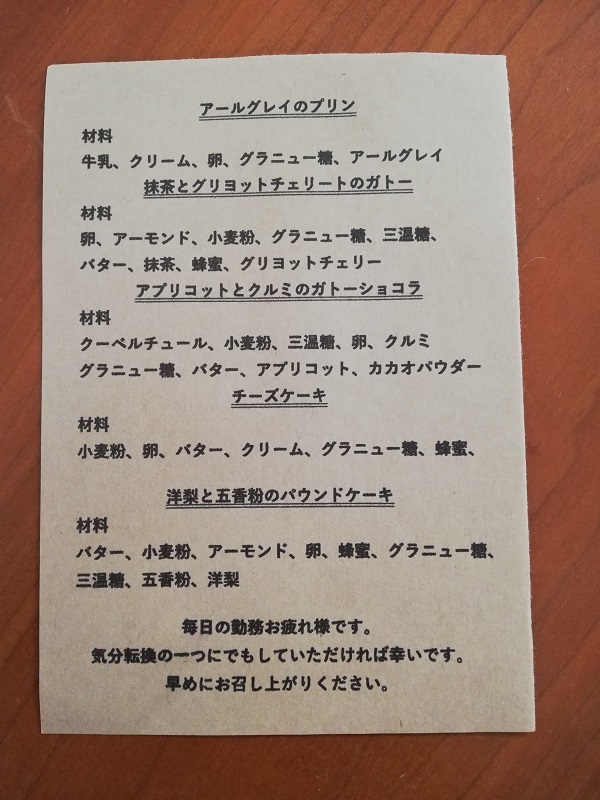 アールグレイのプリン
材料
牛乳、クリーム、卵、グラニュー糖、アールグレイ
抹茶とグリヨットチェリートのガトー
材料
卵、アーモンド、小麦粉、グラニュー糖、三温糖、
バター、抹茶、蜂蜜、グリヨットチェリー
アプリコットとクルミのガトーショコラ
材料
クーベルチュール、小麦粉、三温糖、卵、クルミ
グラニュー糖、バター、アプリコット、カカオパウダー
チーズケーキ
材料
小麦粉、卵、バター、クリーム、グラニュー糖、蜂蜜、
洋梨と五香粉のパウンドケーキ
材料
バター、小麦粉、アーモンド、卵、蜂蜜、グラニュー糖、
三温糖、五香粉、洋梨
毎日の勤務お疲れ様です。
気分転換の一つにでもしていただければ幸いです。
早めにお召し上がりください。